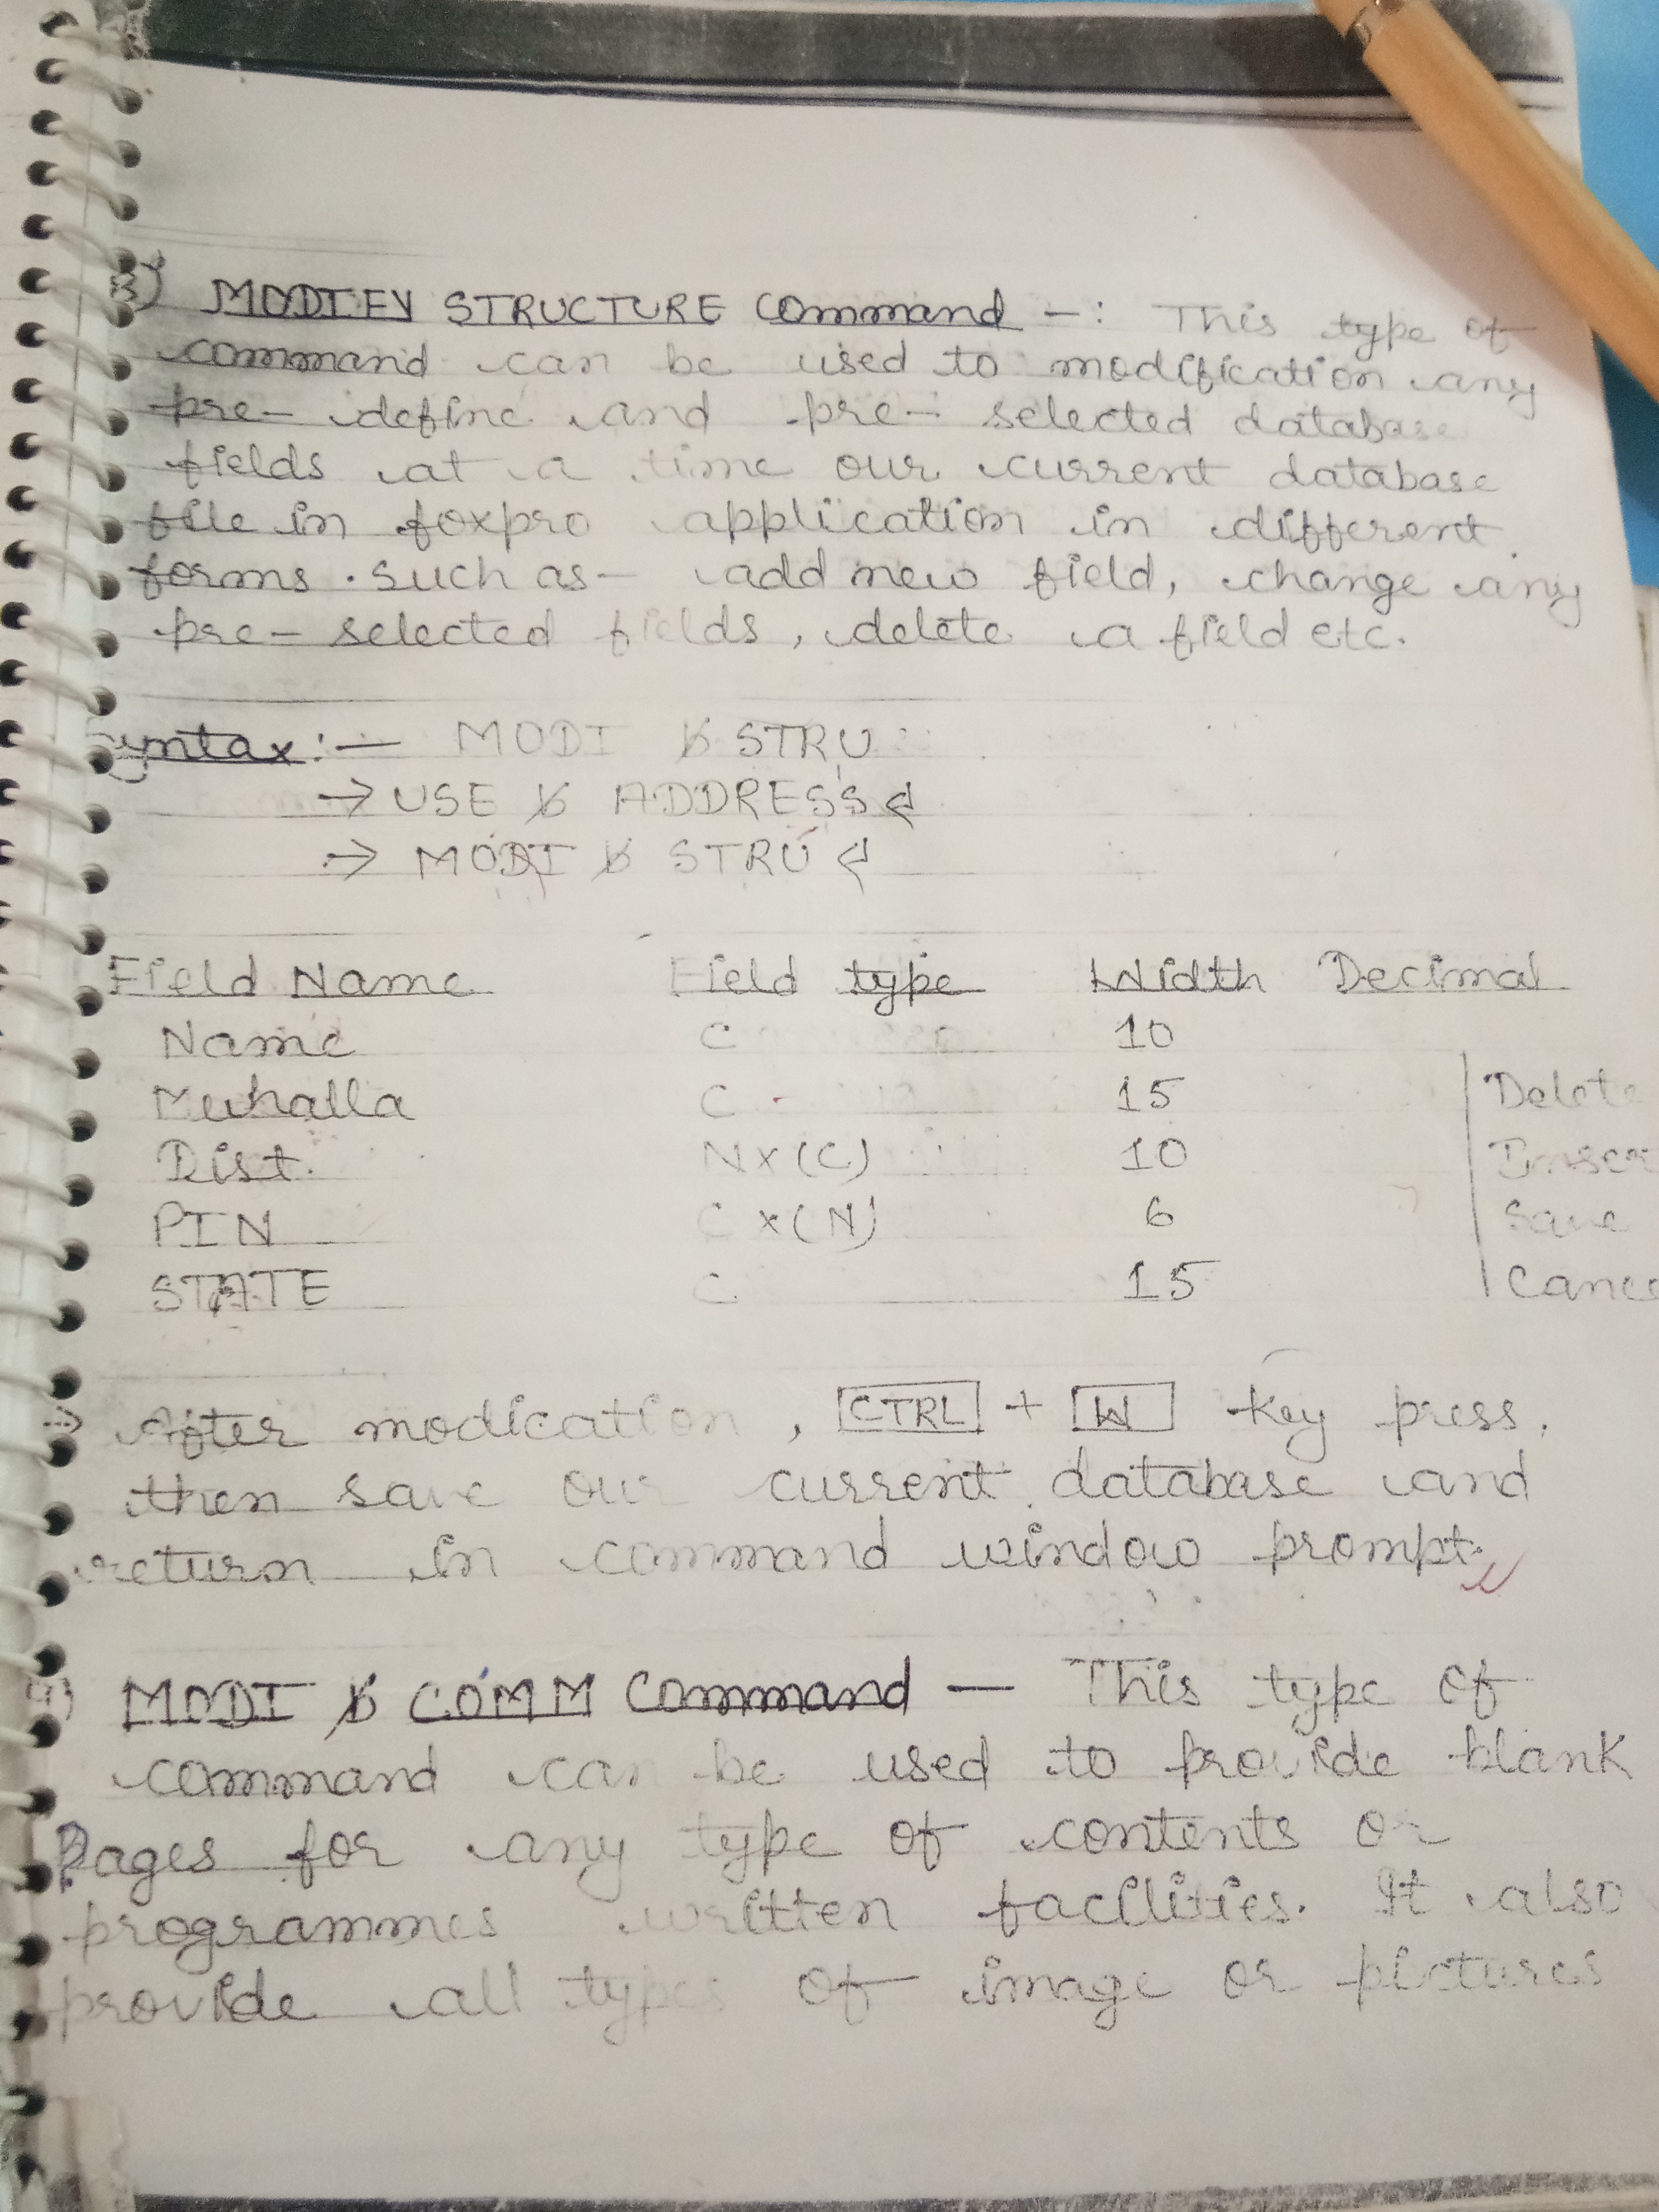 3) MODIFY STRUCTURE Command -: This type of
command can be used to modification any
pre- define and pre- selected database
fields at a time our current database
file in foxpro application in different
forms. Such as- add new field, change any
pre- selected fields, delete a field etc.
Syntax:- MODI ␢ STRU
→ USE ␢ ADDRESS
→ MODI ␢ STRU
Field Name Field type Width Decimal
Name C 10
Muhalla C 15 Delete
Dist. N×(C) 10 Inser
PIN C×(N) 6 Save
STATE C 15 Cance
⇒ After modication, CTRL + W Key press.
then save our current database and
return in command window prompt.
4) MODI ␢ COMM Command - This type of
command can be used to provide blank
Pages for any type of contents or
programmes written facilities. It also
provide all types of image or pictures